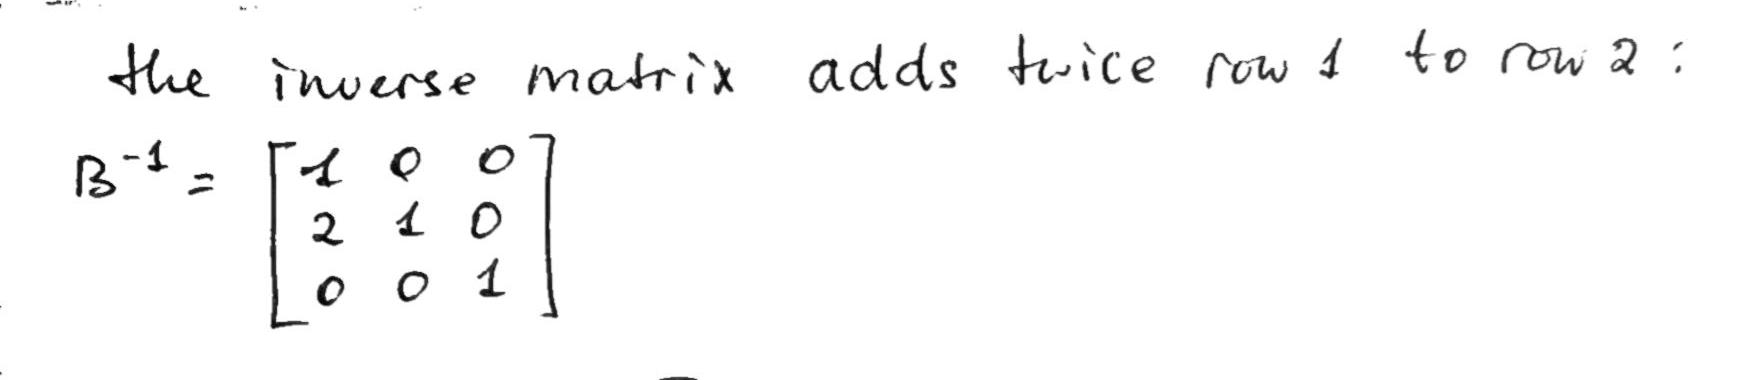 the inverse matrix adds twice row 1 to row 2:
B⁻¹ = [1 0 0
2 1 0
0 0 1]